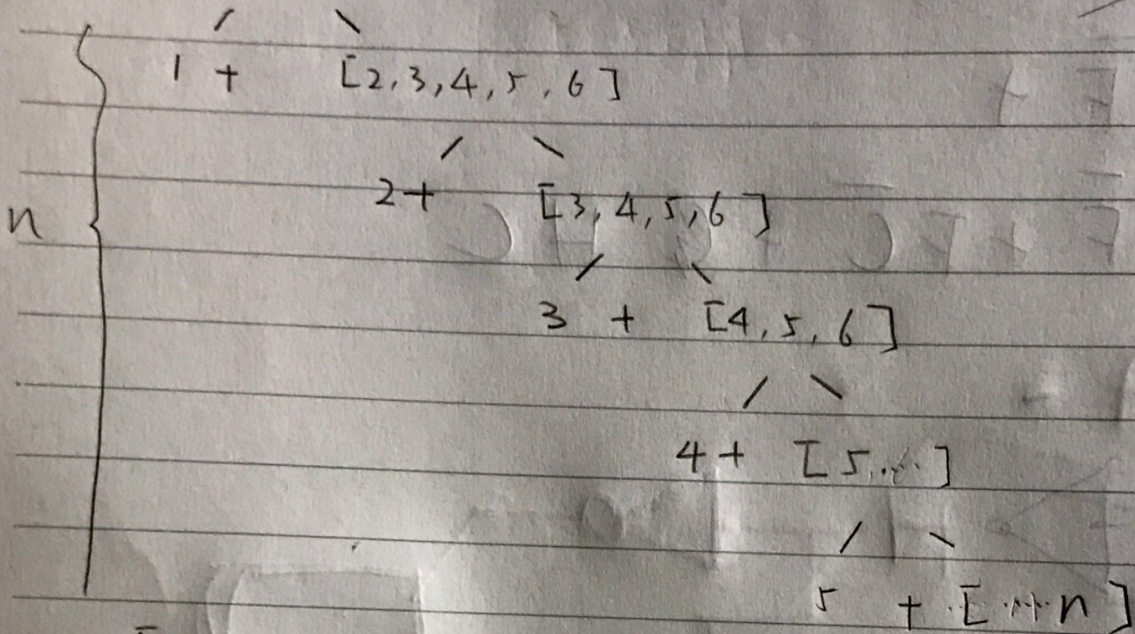 1 + [2,3,4,5,6]
2+ [3,4,5,6]
n
3 + [4,5,6]
4+ [5...]
5 + [...n]